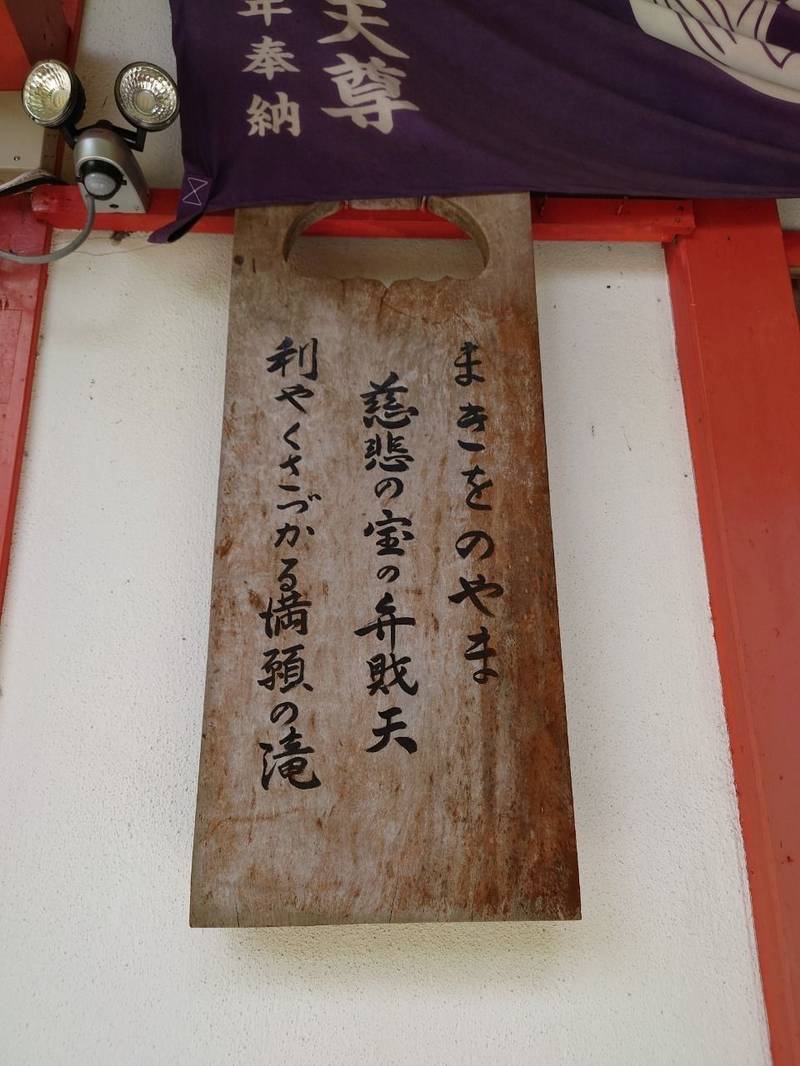 天尊
年奉納
まきをのやま
慈悲の宝の弁財天
利やくさづかる満願の滝